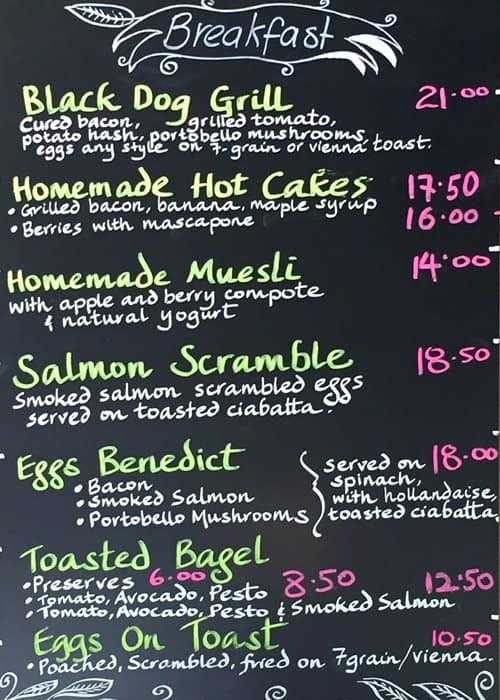 Breakfast
Black Dog Grill 21.00
Cured bacon, grilled tomato,
potato hash, portobello mushrooms,
eggs any style on 7-grain or vienna toast.
Homemade Hot Cakes 17.50
• Grilled bacon, banana, maple syrup
• Berries with mascapone 16.00
Homemade Muesli 14.00
with apple and berry compote
& natural yogurt
Salmon Scramble 18.50
Smoked salmon scrambled eggs
served on toasted ciabatta.
Eggs Benedict 18.00
• Bacon
• Smoked Salmon
• Portobello Mushrooms
served on
spinach,
with hollandaise,
toasted ciabatta,
Toasted Bagel
• Preserves 6.00
• Tomato, Avocado, Pesto 8.50
• Tomato, Avocado, Pesto & Smoked Salmon 12.50
Eggs On Toast 10.50
• Poached, Scrambled, fried on 7grain/vienna.